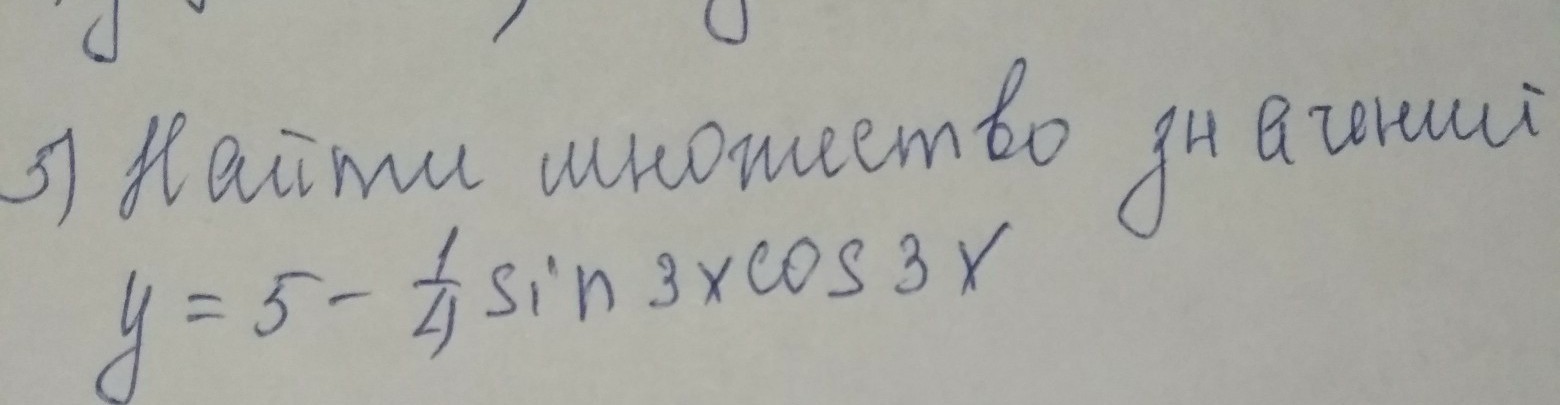 5) Найти множество значений
y = 5 - 1/4 sin 3x cos 3x